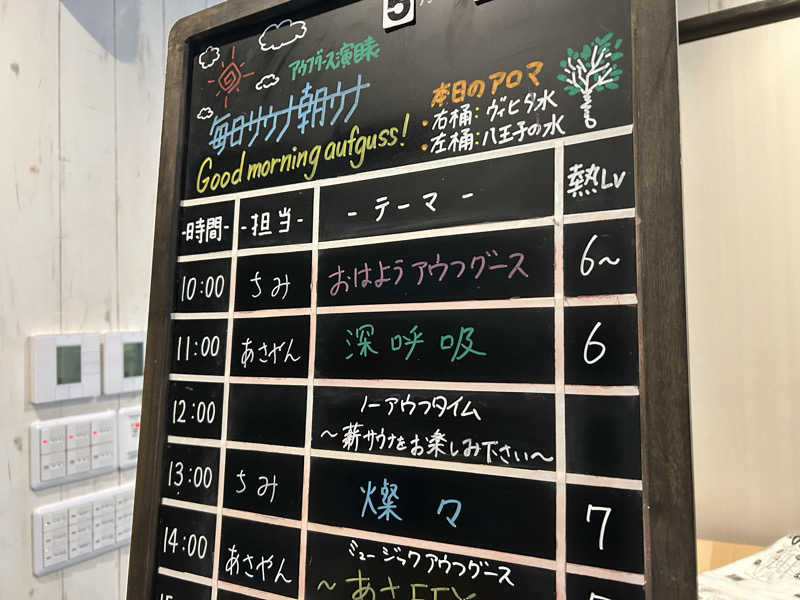 5
アウフグース演目表
毎日サウナ朝ウナ
Good morning aufguss!
本日のアロマ
・右桶：ヴィヒタ水
・左桶：八王子の水
-時間- -担当- -テーマ- 熱Lv
10:00 ちみ おはようアウフグース 6〜
11:00 あさやん 深呼吸 6
12:00 ノーアウフタイム
〜薪サウナをお楽しみ下さい〜
13:00 ちみ 燦々 7
14:00 あさやん ミュージックアウフグース
〜あさ